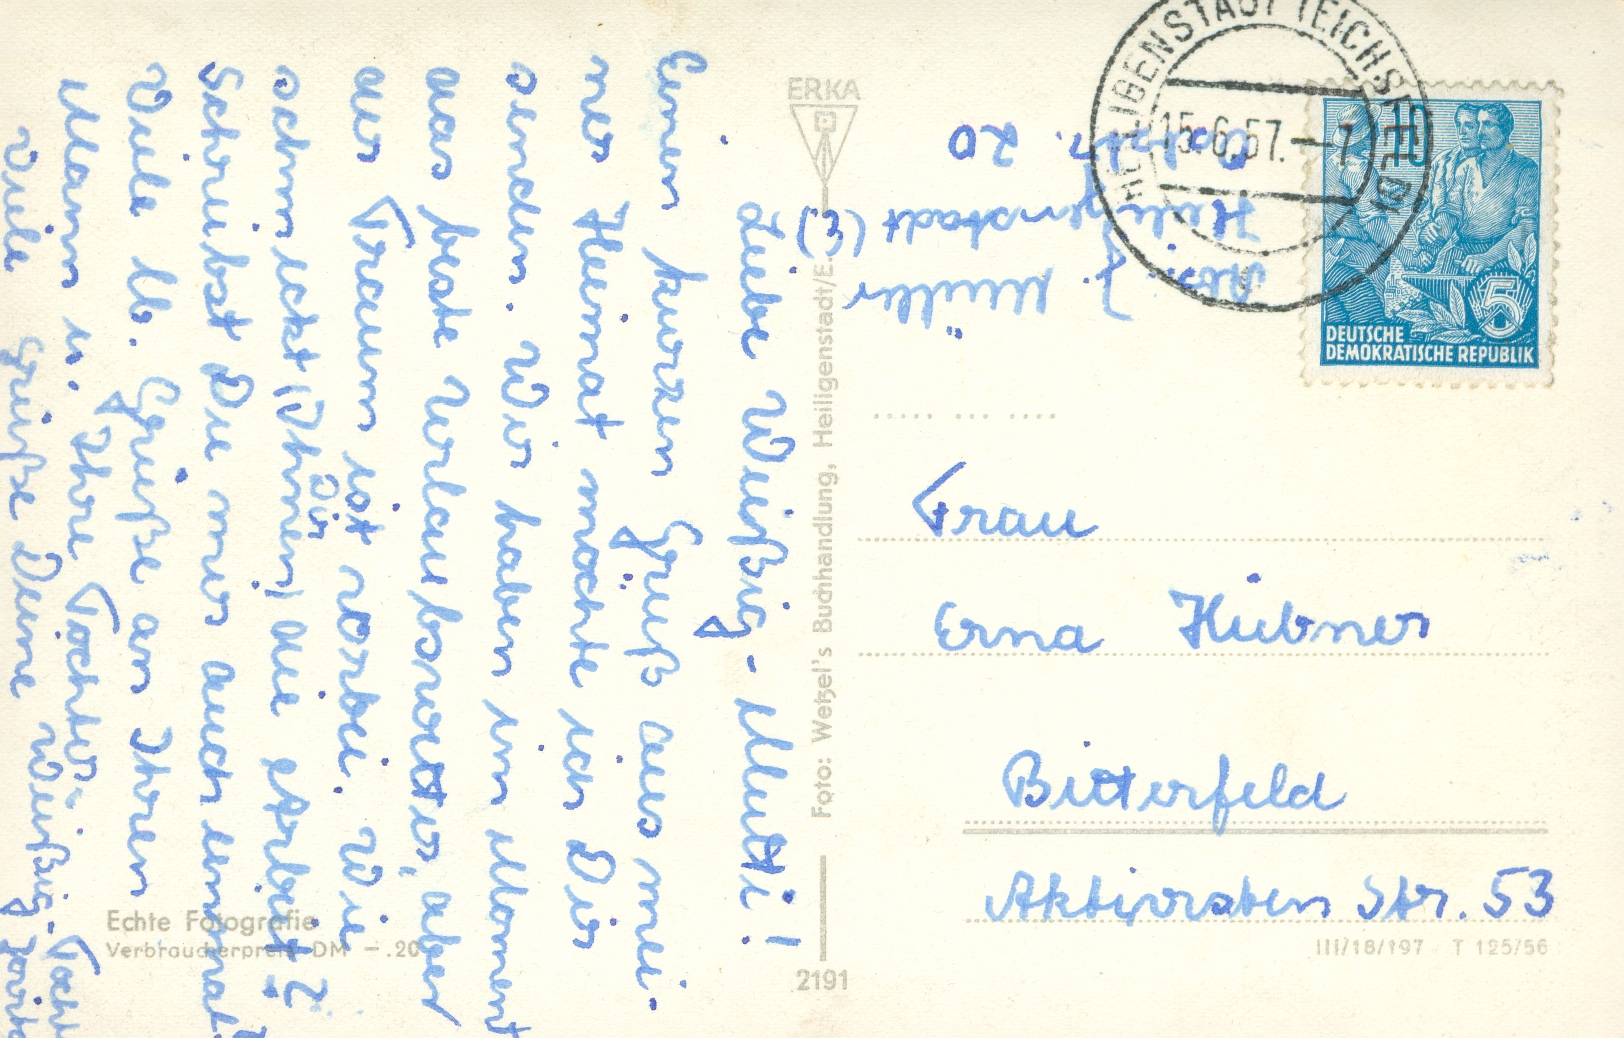 Liebe Weißig-Mutti!
Einen kurzen Gruß aus mei-
ner Heimat möchte ich Dir
senden. Wir haben im Moment
das beste Urlaubswetter, aber
der Traum ist vorbei. Wie
schmeckt (Ihnen) Dir die Arbeit?
Schreibst Du mir auch einmal?
Viele lb. Grüße an Ihren
Mann u. Ihre Tochter.
Viele Grüße Deine Weißig-Tocht.
ERKA
Foto: Weßel's Buchhandlung, Heiligenstadt/E.
2191
Echte Fotografie
Verbraucherpreis DM -.20
J. Müller
Heiligenstadt (E)
20
HEILIGENSTADT (EICHSFELD)
15.6.57.-7
10
5
DEUTSCHE
DEMOKRATISCHE REPUBLIK
Frau
Erna Hübner
Bitterfeld
Aktivisten Str. 53
III/18/197 T 125/56